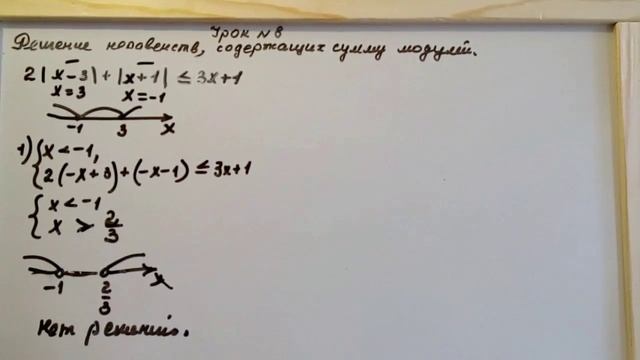 Урок N 8
Решение неравенств, содержащих сумму модулей.
2|x-3|+|x+1| ≤ 3x+1
x=3 x=-1
-1 3 x
1) { x < -1,
2(-x+3)+(-x-1) ≤ 3x+1
{ x < -1
x > 2/3
-1 2/3 x
Нет решений.